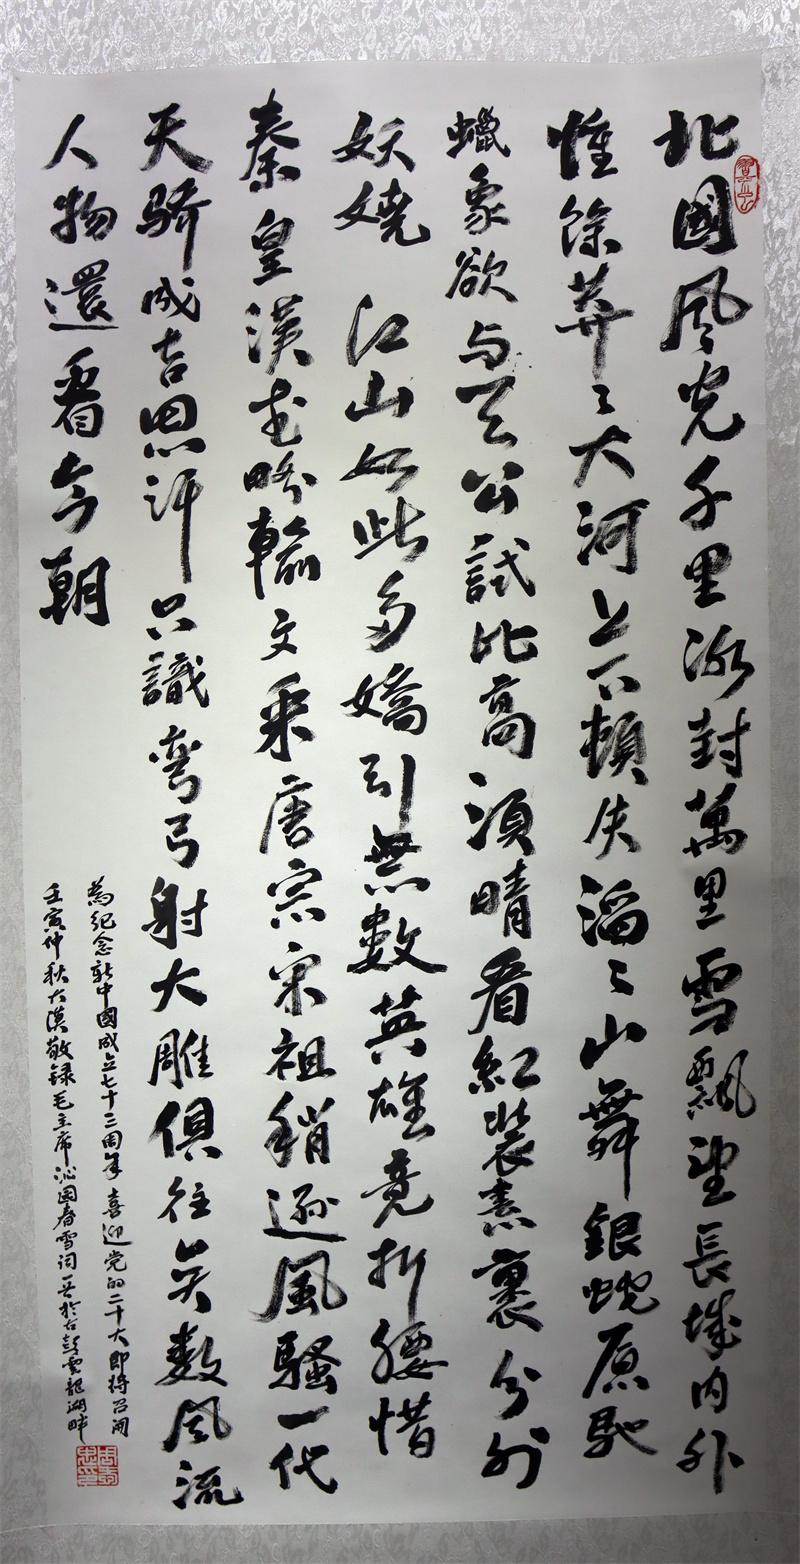 北國风光千里冰封萬里雪飄望長城内外
惟餘莽〻大河上下頓失滔〻山舞銀蛇原馳
蠟象欲与天公試比高須晴看紅装素裹分外
妖嬈 江山如此多嬌引無數英雄竟折腰惜
秦皇漢武略輸文采唐宗宋祖稍遜風騷一代
天骄成吉思汗只識弯弓射大雕俱往矣數风流
人物還看今朝
為纪念新中國成立七十三周年喜迎党的二十大即将召開
壬寅仲秋大漠敬録毛主席沁园春雪词一首於古彭雲龍湖畔